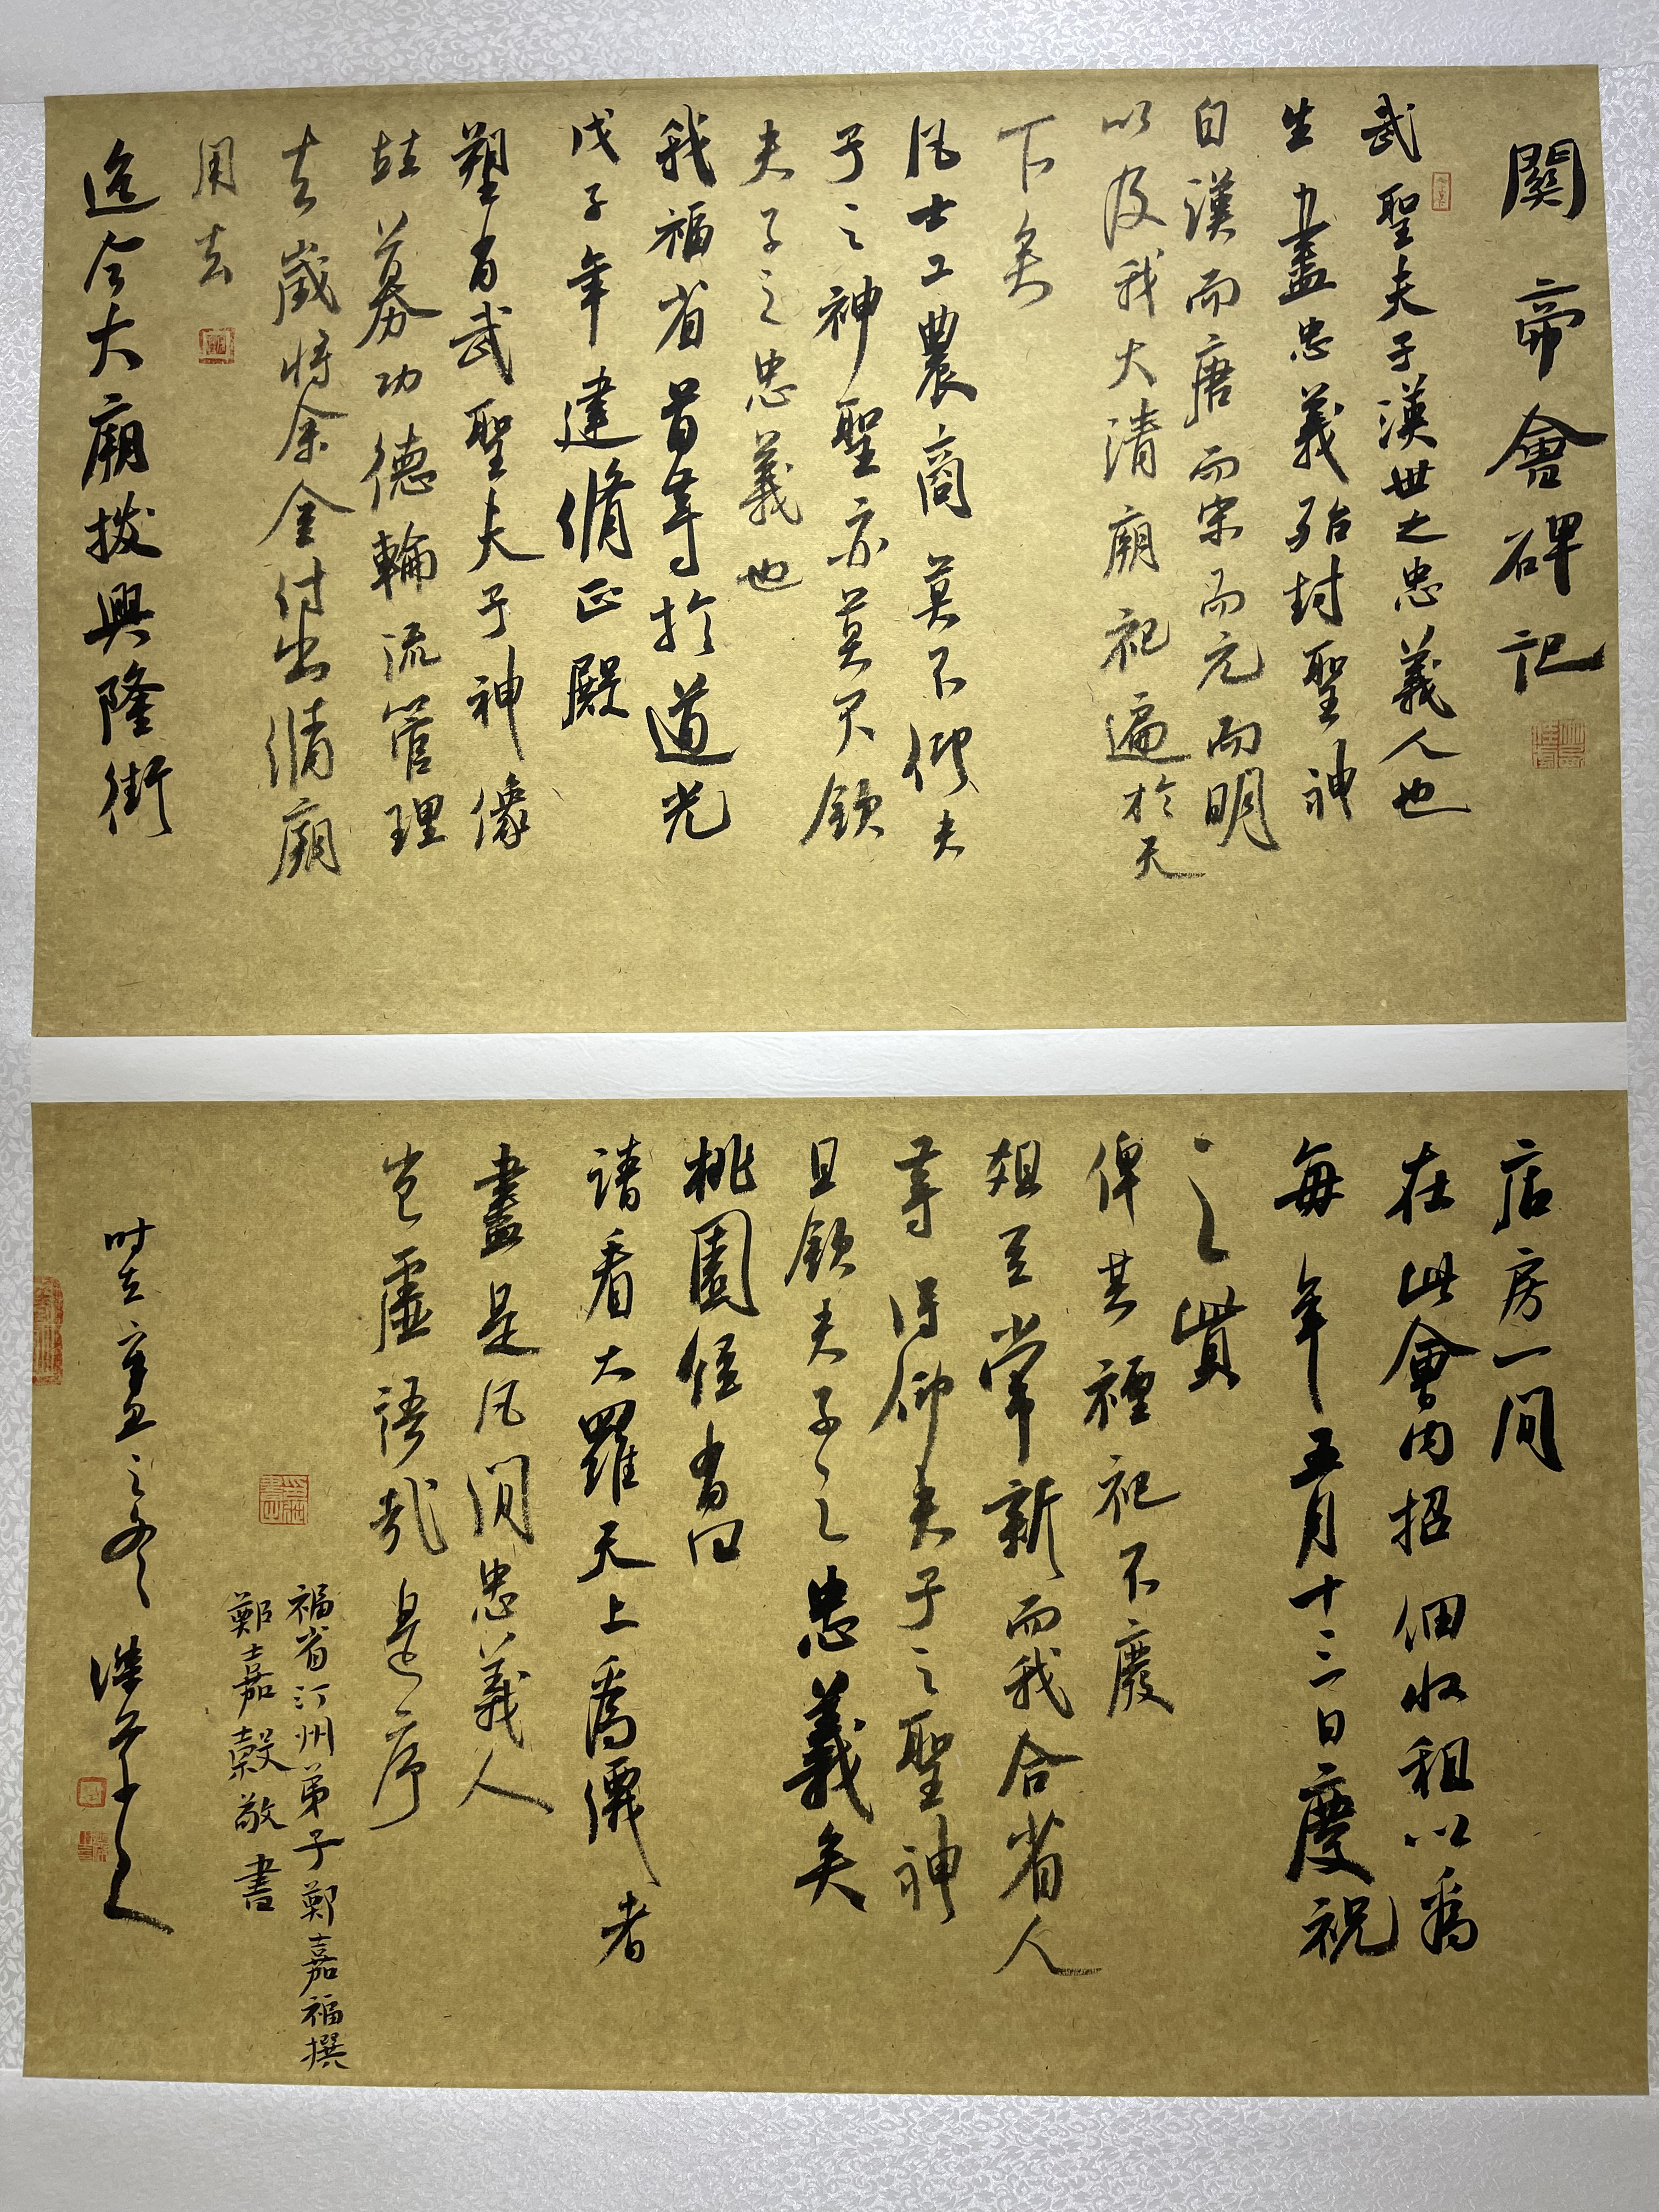 關帝會碑記
武聖夫子漢世之忠義人也
生盡忠義殆封聖神
自漢而唐而宋而元而明
以及我大清廟祀遍於天
下矣
凡士工農商莫不仰夫
子之神聖亦莫不欽
夫子之忠義也
我福省首等於道光
戊子年建脩正殿
塑有武聖夫子神像
募功德輪流管理
去歲將余金付出脩廟
用去
迄今大廟撥興隆街
店房一間
在此會內招佃收租以為
每年五月十三日慶祝
之貲
俾其禋祀不廢
俎豆常新而我合省人
等得仰夫子之聖神
且欽夫子之忠義矣
桃園經有曰
請看大羅天上為僊者
盡是凡間忠義人
豈虛語哉是序
福省汀州弟子鄭嘉福撰
鄭嘉穀敬書
時在辛丑之冬